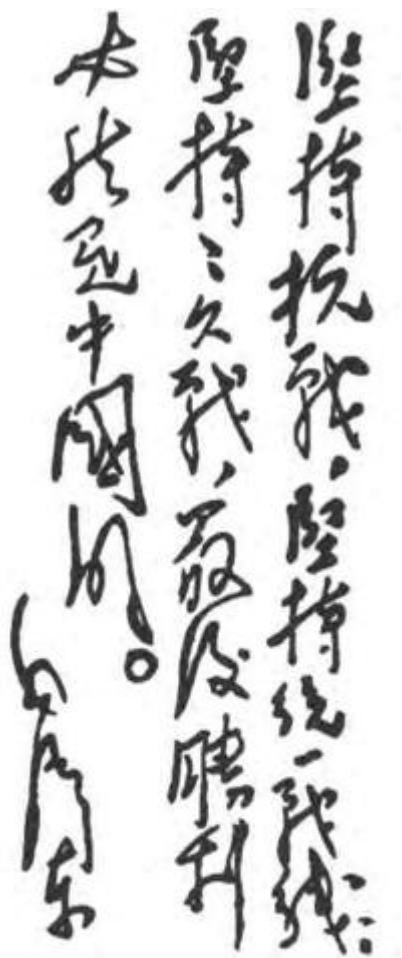 堅持抗戰、堅持統一戰綫、
堅持持久戰、最後勝利
必然是中國的。
毛澤東